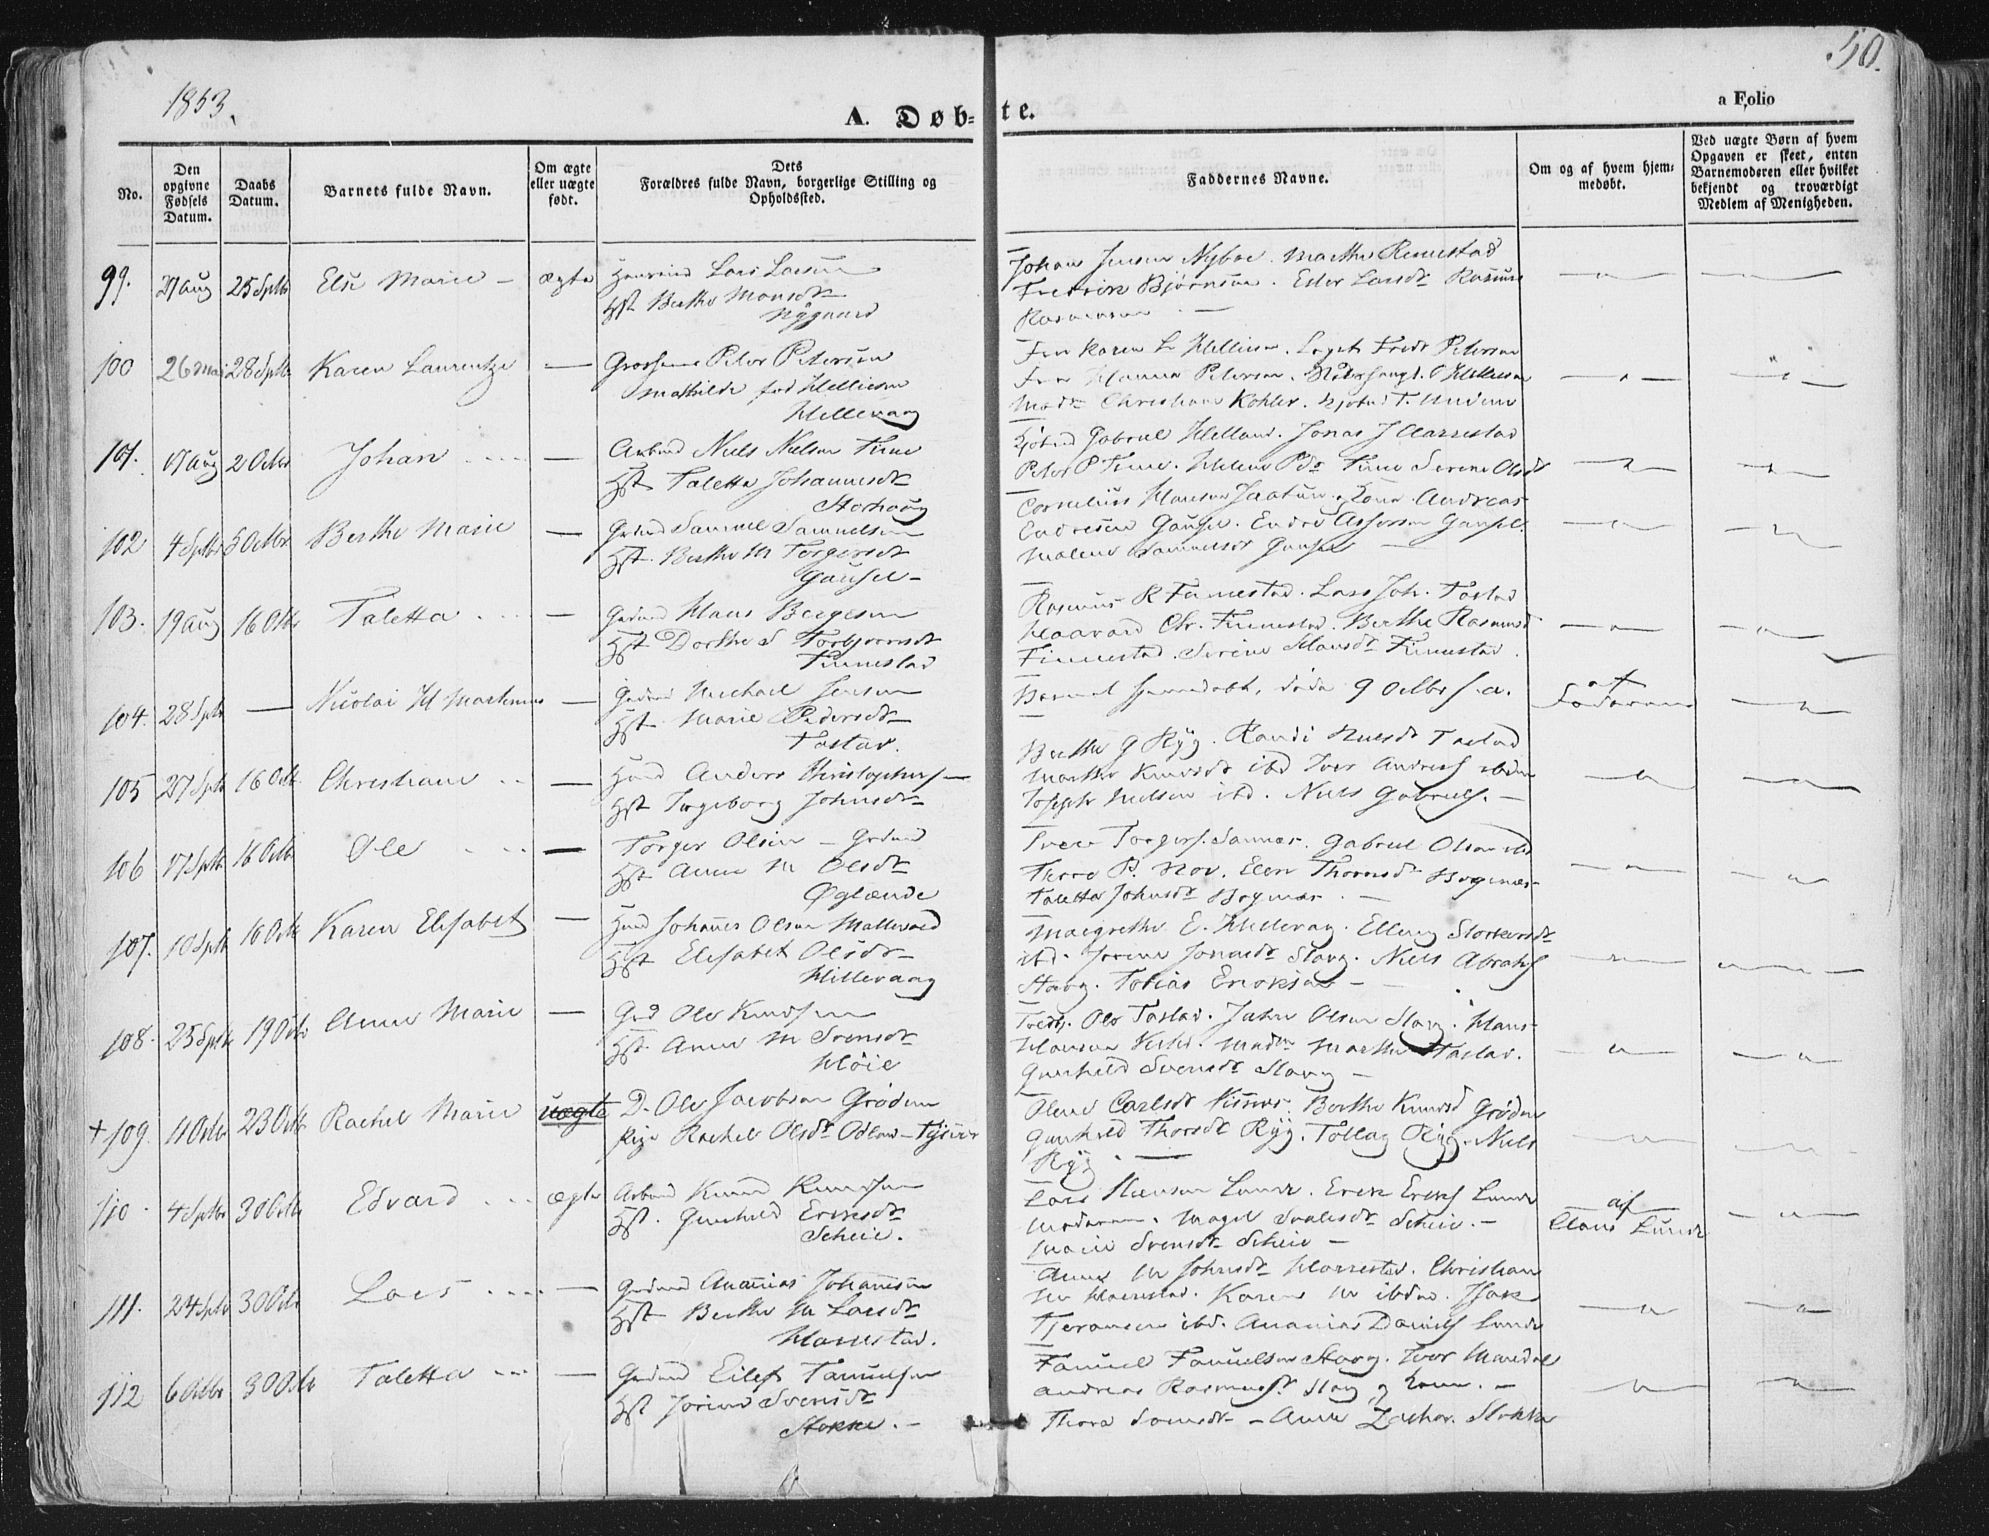 1853.
50.
A. Døb=te.
a Folio
No.
Den opgivne Fødsels Datum.
Daabs Datum.
Barnets fulde Navn.
Om ægte eller uægte født.
Dets Forældres fulde Navn, borgerlige Stilling og Opholdssted.
Faddernes Navne.
Om og af hvem hjemmedøbt.
Ved uægte Børn af hvem Opgaven er skeet, enten Barnemoderen eller hvilket bekjendt og troværdigt Medlem af Menigheden.
99. 27 Aug 25 Sptbr Else Marie – ægte
Lars Larsen
Hst Berthe Monsdt
Nygaard
Johan Jensen Nyboe. Marthe Rennestad
Fredrik Bjørnsen. Ester Larsdt Rasmus
Rasmussen –
100 26 Mai 28 Sptb Karen Laurentze –
Peter Petersen
Mathilde fød Helliesen
Hillevaag
Fru Karen L Helliesen. Fredr Petersen
Fru Hanna Petersen. Helliesen
Mad Christiane Kohler. Kjøbmd T.
101. 17 Aug 2 Octbr Johan –
Arbmd Niels Nielsen Time
Hst Taletta Johannesdt
Storhaug
Kjøbmd Gabriel Helland. Jonas J Harrestad
Peter P Time. Helene Pdr Time Serene Olsdt
102 4 Sptbr Octbr Berthe Marie –
Grdmd Samuel Samuelsen
Hst. Berthe M Torgersdt
Gausel –
Cornelius Hansen Jaatun. Kone Andreas
Endresen Gausel. Endre Assersen Gausel.
Malene Samuelsdt Gausel –
103. 19 Aug 16 Octbr Taletta –
Grdmd Hans Børgesen
Hst Dorthe S Torbjørnsdt
Finnestad
Rasmus R Finnestad. Lars Joh. Tastad
Haavard Chr. Finnestad. Berthe Rasmusd
Finnestad. Serine Hansdt Finnestad.
104. 28 Sptb – Nicolai M Martinus –
Grdmd Michael Jensen
Hst. Marie Pedersdt
Tastad.
Barnet hjemmedøbt, døde 9 Octbr s.a.
af
Faderen
105 27 Sptb 16 Octb. Christiane –
Huusmd Anders Christophers –
Hst Ingeborg Johnsdt –
Berthe G Ryg. Randi Nielsdt Tastad
Marthe Knudsdt ibd Iver Andreas ibdm
Joseph Nielsen ibd. Niels Gabriels. –
106 17 Sptb 16 Octbr Ole –
Torger Olsen – Grdmd
Hst Anne M Olsdt
Øglænde
Torgers. Sannes. Gabriel Olsen ibd
P. Hov. Elen Thorsdt
Taletta Johnsdt –
107. 10 Sptb 16 Octb Karen Elisabet –
Huusmd Johannes Olsen
Hst Elisabet Olsdr
Hillevaag
Margrethe E. Hillevaag. Elleng
ibd. Serine Jonasdt Stavg. Niels Abrahs
Stavg. Tobias Eriksen –
108. 25 Sptb 19 Octbr Anne Marie –
Grd Ole Knudsen
Hst. Anne M Svensdt
Høie
Ole Tastad. John Olsen Stavg. Hans
Hansen. Madm Marthe Tastad.
Gunhild Svensdt Stavg –
+ 109. Octbr 23 Octb Rachel Marie uægte
D. Ole Jacobsen Grødem
Pige Rachel Olsdt – Tysvær
Olene Carlsdt. Berthe Knudsd Grødem
Gunhild Thorsdt Ryg. Tollag Ryg. Niels
Ryg. –
110. 4 Sptbr 30 Octb Edvard ægte
Arbmd Knud Knudsen
Hst. Gunhild Eriksdt
Scheie.
Lars Hansen Lunde. Erik Eriks Lunde
Moderen. Magel Scheie. –
Marie Svensdt Scheie –
af
Claus Lunde
111. 24 Sptbr 30 Octb Lars –
Grdmd Ananias Johannesen
Hst Berthe M Larsdt
Harrestad.
Anne M Johnsdt Harrestad. Christian
Harrestad. Karen M ibdm. Isak
Tjeransen ibd. Ananias Daniels Lunde
112 6 Octbr 30 Octb Taletta –
Grdmd Eilef Samuelsen
Hst Jorine Svensdt
Stokke. –
Samuel Samuelsen Stavg. Iver
Andreas Rasmuss. Stavg og Kone. –
Thora – Anne Zachar. Stokke